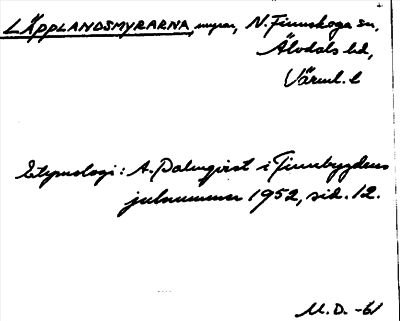 LÄPPLANDSMYRARNA, myrar, N. Finnskoga sn,
Älvdals hd,
Värml. l
Etymologi: A. Palmqvist i Finnbygdens
julnummer 1952, sid. 12.
M.D. -61